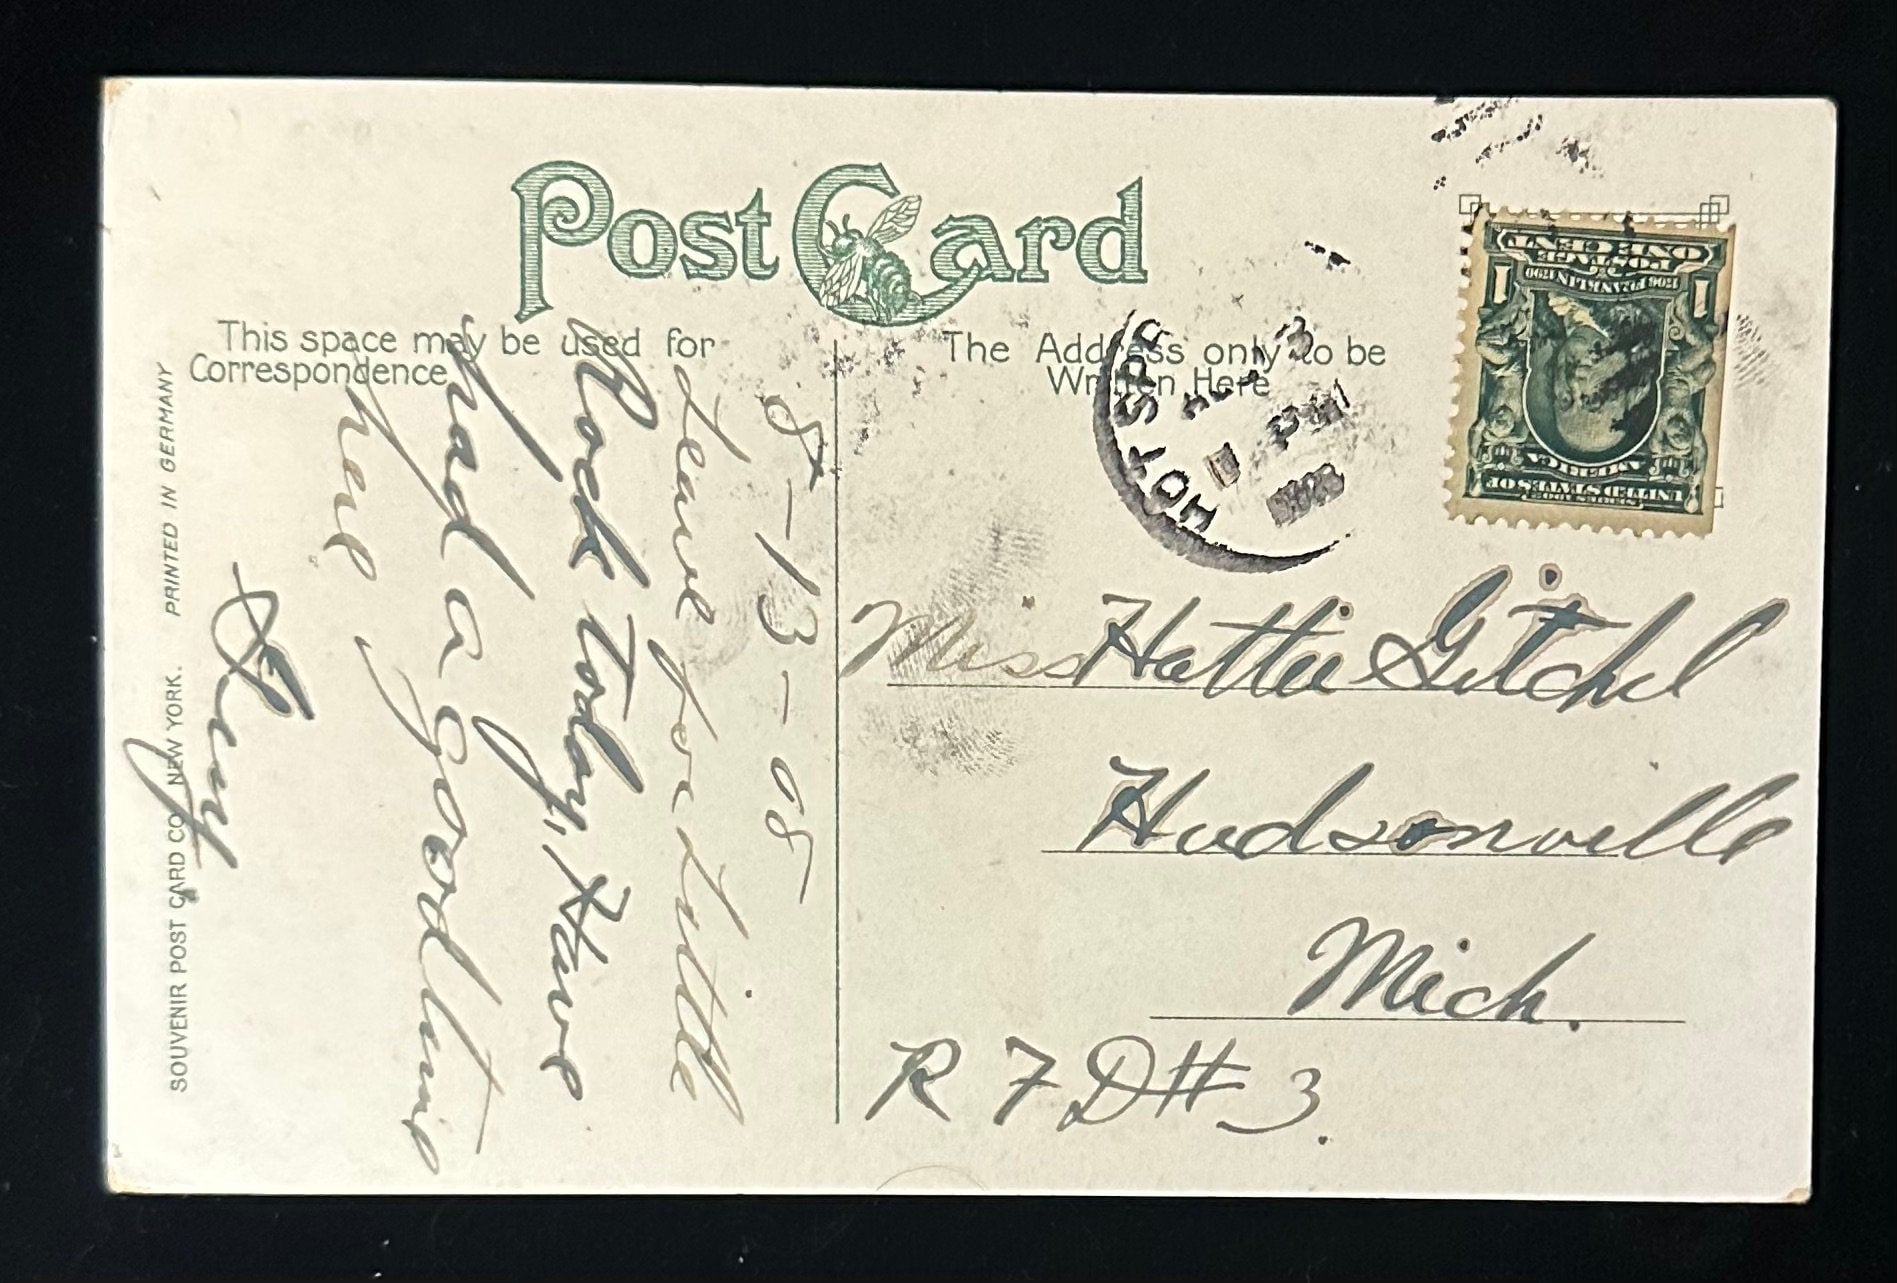 Post Card
This space may be used for
Correspondence
The Address only to be
Written Here
8-13-08
Leave for Little
Rock today, Have
had a good time
here
Guy
Miss Hattie Gitchel
Hudsonville
Mich.
R F D # 3.
HOT SPR
1 PM
SOUVENIR POST CARD CO. NEW YORK. PRINTED IN GERMANY
SERIES 1902
UNITED STATES OF
AMERICA
1706 FRANKLIN 1790
1 1
POSTAGE
ONE CENT